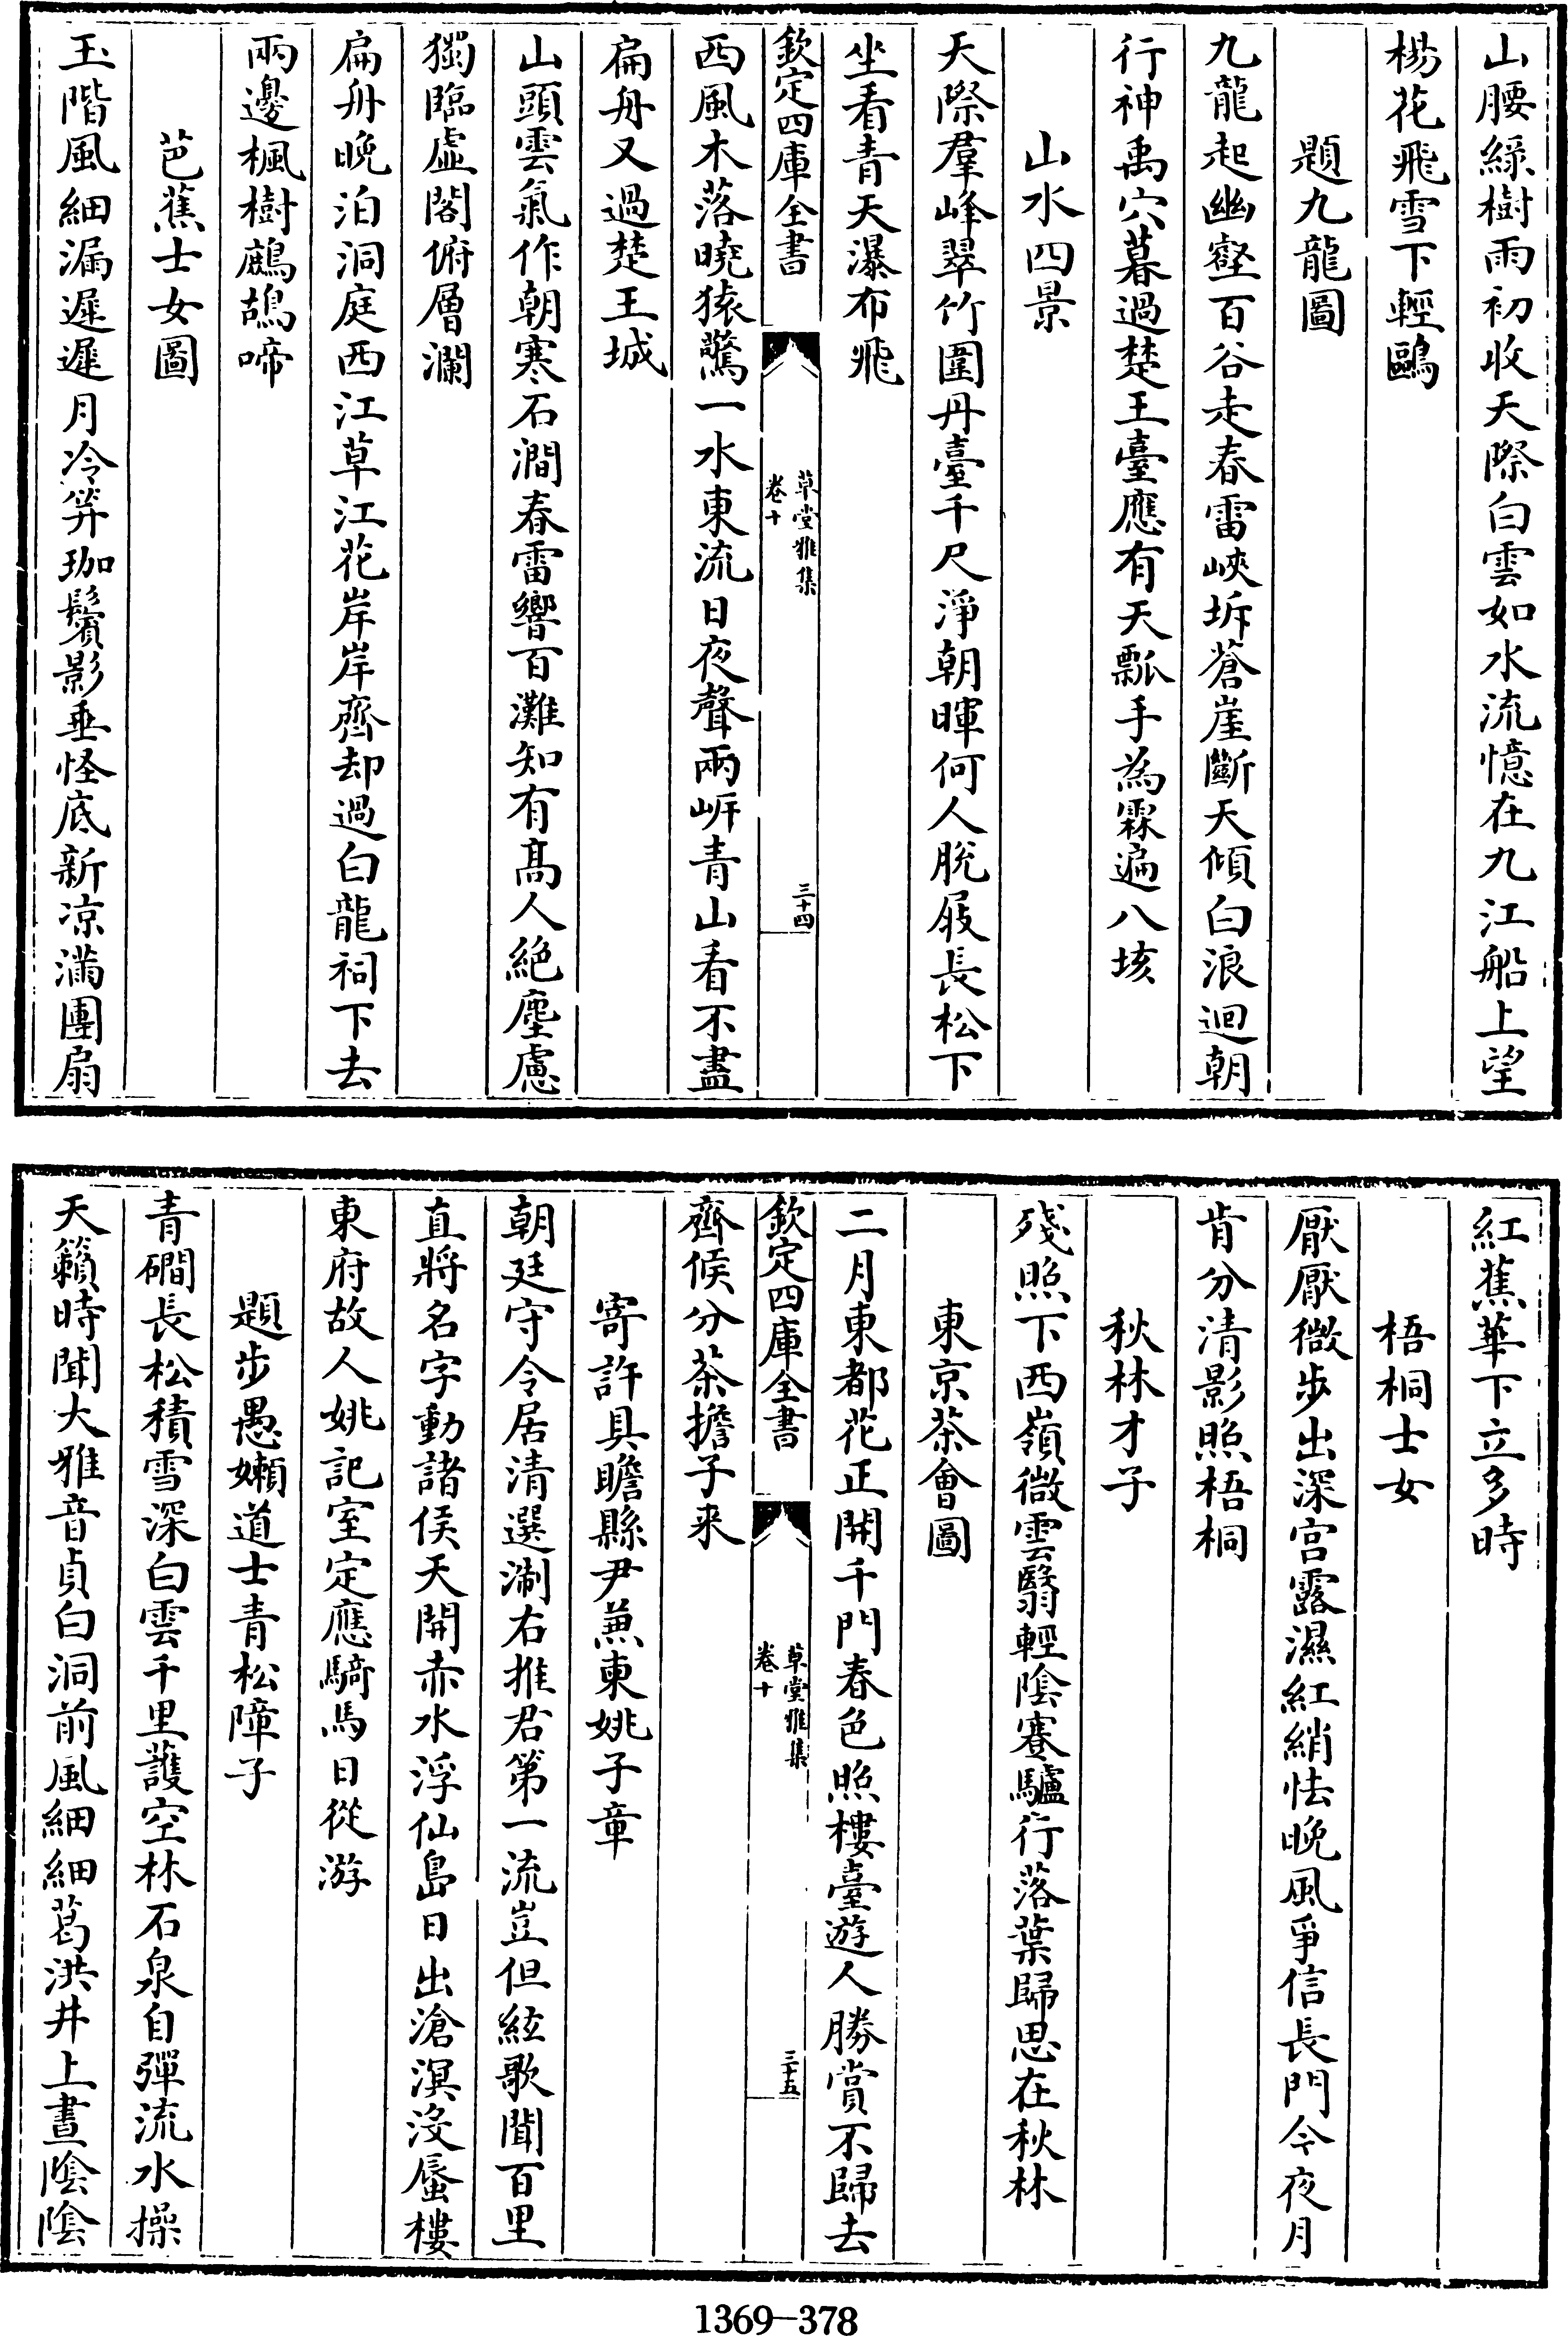 山腰緑樹雨初收天際白雲如水流憶在九江船上望
楊花飛雪下輕鷗
題九龍圖
九龍起幽壑百谷走春雷峽坼蒼崖斷天傾白浪迴朝
行神禹穴暮過楚王臺應有天瓢手為霖遍八垓
山水四景
天際羣峰翠竹圍丹臺千尺淨朝暉何人脫屐長松下
坐看青天瀑布飛
欽定四庫全書
草堂雅集
卷十
三十四
西風木落曉猿驚一水東流日夜聲兩岍青山看不盡
扁舟又過楚王城
山頭雲氣作朝寒石澗春雷響百灘知有髙人絶塵慮
獨臨虛閣俯層瀾
扁舟晚泊洞庭西江草江花岸岸齊却過白龍祠下去
兩邊楓樹鷓鴣啼
芭蕉士女圖
玉階風細漏遲遲月冷笄珈鬢影垂怪底新凉滿團扇
紅蕉華下立多時
梧桐士女
厭厭微步出深宫露濕紅綃怯晚風爭信長門今夜月
肯分清影照梧桐
秋林才子
殘照下西嶺微雲翳輕陰蹇驢行落葉歸思在秋林
東京茶會圖
二月東都花正開千門春色照樓臺遊人勝賞不歸去
欽定四庫全書
草堂雅集
卷十
三十五
齊候分茶擔子来
寄許具瞻縣尹兼柬姚子章
朝廷守令居清選淛右推君第一流豈但絃歌聞百里
直將名字動諸侯天開赤水浮仙島日出滄溟沒蜃樓
東府故人姚記室定應騎馬日從游
題步愚嬾道士青松障子
青磵長松積雪深白雲千里護空林石泉自彈流水操
天籟時聞大雅音貞白洞前風細細葛洪井上晝陰陰
1369—378